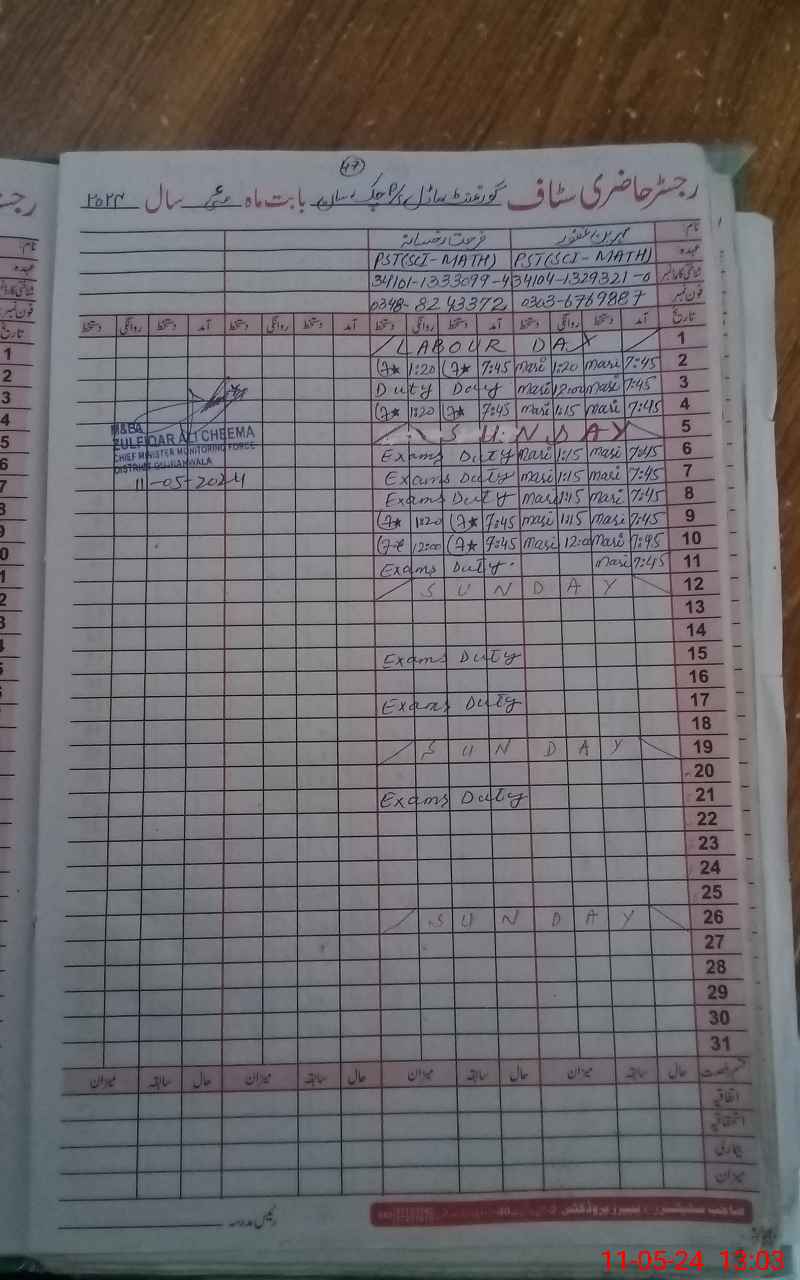 47
رجسٹر حاضری سٹاف گورنمنٹ ماڈل P/S چک بابت ماہ مئی سال ۲۰۲۴
نام: مہرین غفور فرحت رخسانہ
عہدہ PST(SCI-MATH) PST(SCI-MATH)
شناختی کارڈ نمبر 34104-1329321-0 34101-1333099-4
فون نمبر 0303-6769887 0348-8243372
تاریخ آمد دستخط روانگی دستخط آمد دستخط روانگی دستخط آمد دستخط روانگی دستخط آمد دستخط روانگی دستخط
1 LABOUR DAY
2 7:45 Masi 1:20 Masi 7:45 1:20
3 7:45 Masi 12:00 Masi Duty Day
4 7:45 Masi 1:15 Masi 7:45 1:20
5 SUNDAY
6 7:45 Masi 1:15 Masi Exams Duty
7 7:45 Masi 1:15 Masi Exams Duty
8 7:45 Masi 1:15 Masi Exams Duty
9 7:45 Masi 1:15 Masi 7:45 1:20
10 7:45 Masi 12:00 Masi 7:45 12:00
11 7:45 Masi Exams Duty
12 SUNDAY
13
14
15 Exams Duty
16
17 Exams Duty
18
19 SUNDAY
20
21 Exams Duty
22
23
24
25
26 SUNDAY
27
28
29
30
31
M&EA
ZULFIQAR ALI CHEEMA
CHIEF MINISTER MONITORING FORCE
DISTRICT GUJRANWALA
11-05-2024
قسم رخصت حال سابقہ میزان حال سابقہ میزان حال سابقہ میزان حال سابقہ میزان
اتفاقیہ
استحقاقیہ
بیماری
میزان
رئیس مدرسہ
11-05-24 13:03